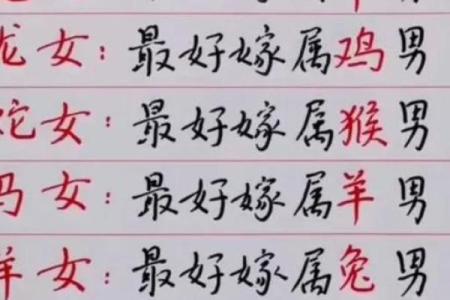 龙女：最好嫁属鸡男
蛇女：最好嫁属猴男
马女：最好嫁属羊男
羊女：最好嫁属兔男